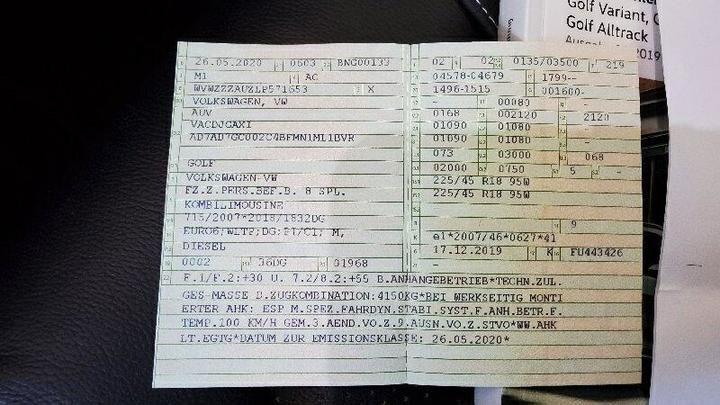 Golf Variant,
Golf Alltrack
2019
26.05.2020 0603 BNG00133
M1 AC
WVWZZZAUZLP571653 X
VOLKSWAGEN, VW
AUV
VACDJGAX1
AD7AD7GC002C4BFMN1ML1BVR
GOLF
VOLKSWAGEN-VW
FZ.Z.PERS.BEF.B. 8 SPL.
KOMBILIMOUSINE
715/2007*2018/1832DG
EURO6;WLTP;DG:PI/CI; M,
DIESEL
0002 36DG 01968
02 02 0135/03500 219
04578-04679 1799--
1496-1515 001600-
- 00080 -
0168 002120 2120
01090 01080
01090 01080
073 03000 068
02000 0750 5 -
225/45 R18 95W
225/45 R18 95W
9
e1*2007/46*0627*41
17.12.2019 K FU443426
F.1/F.2:+30 U. 7.2/8.2:+55 B.ANHANGEBETRIEB*TECHN.ZUL.
GES-MASSE D.ZUGKOMBINATION:4150KG*BEI WERKSEITIG MONTI
ERTER AHK: ESP M.SPEZ.FAHRDYN.STABI.SYST.F.ANH.BETR.F.
TEMP.100 KM/H GEM.3.AEND.VO.Z.9.AUSN.VO.Z.STVO*WW.AHK
LT.EGTG*DATUM ZUR EMISSIONSKLASSE: 26.05.2020*